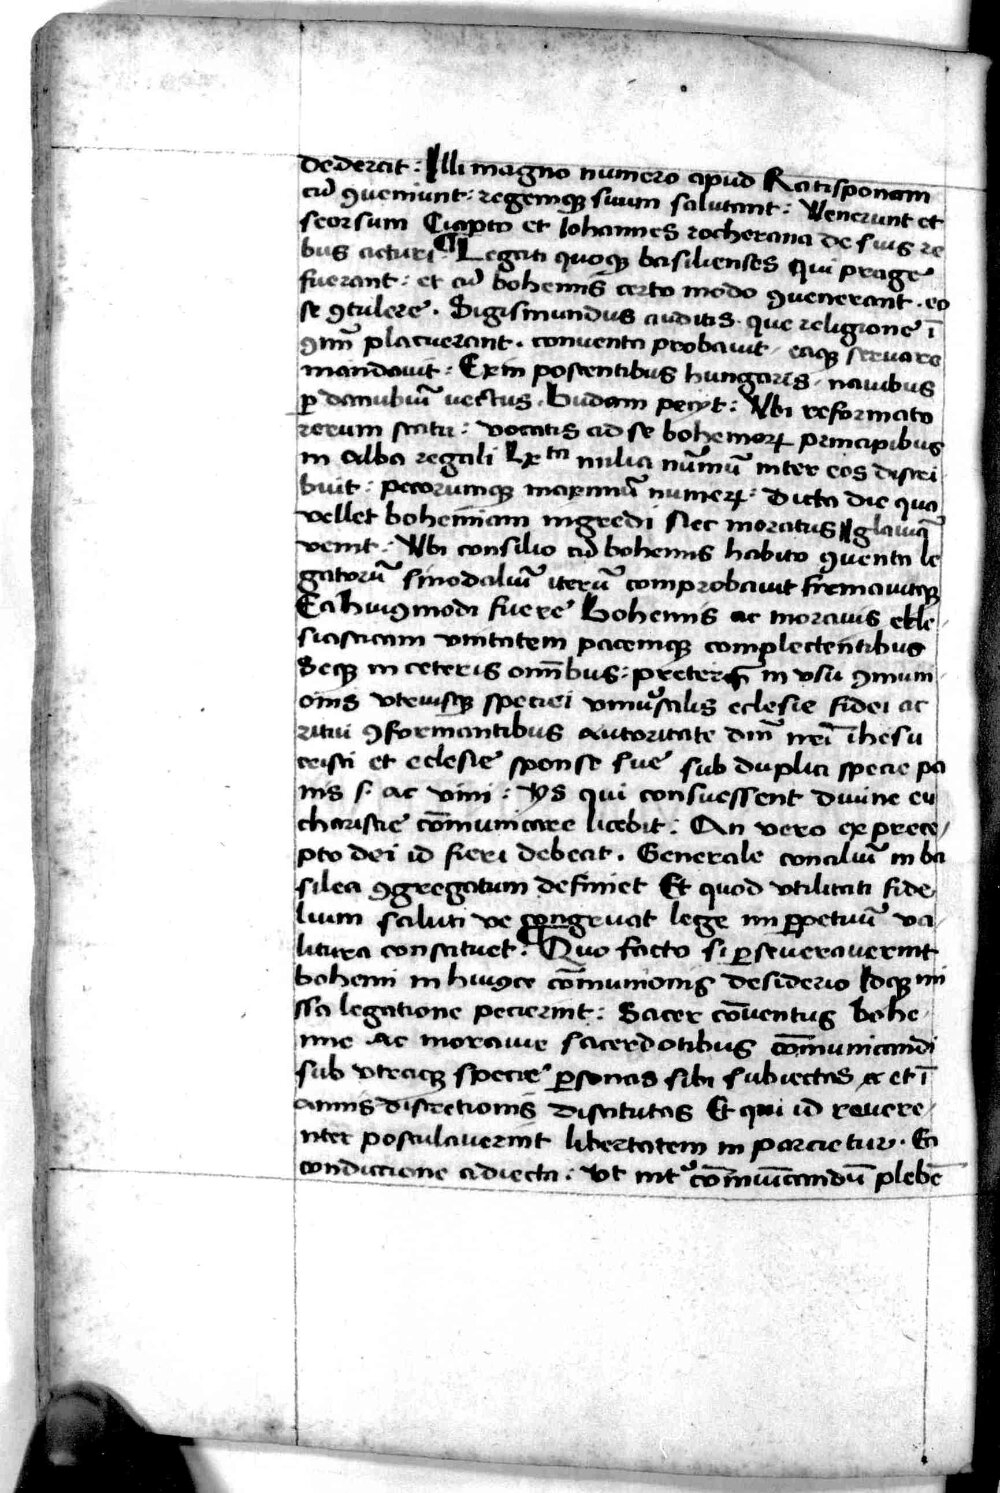 dederat : Illi magno numero apud Ratisponam
cū ꝯueniunt : regemqꝫ suum salutant : Venerunt et
seorsum Czapto et Iohannes rocherana de suis re
bus acturi ¶ Legati quoqꝫ basilienses qui prage
fuerant : et cū bohemis certo modo ꝯuenerant . eo
se ꝯtulere . Sigismundus auditis que religione ī
ꝯmū placuerant . conuenta probauit / eaqꝫ seruare
mandauit : Exin poscentibus hungaris / nauibus
ꝑ danubiū vectus . Budam petyt : Vbi reformato
rerum statu : vocatis ad se bohemoꝝ principibus
in alba regali Lx ta milia nūmū inter eos distri
buit : pecorumqꝫ maximū numeꝝ : Dicta die qua
vellet bohemiam ingredi Nec moratus Iglauiā
venit : Vbi consilio cū bohemis habito ꝯuenta le
gatorū sinodaliū iterū comprobauit firmauitqꝫ
Ea huiꝯmodi fuere Bohemis ac morauis eccle-
siasticam vnitatem pacemqꝫ complectentibus
Seqꝫ in ceteris om̄ibus : preterqꝫ in vsu ꝯmuni-
onis vtriusqꝫ speciei vniuersalis eclesie fidei ac
ritui ꝯformantibus autoritate dm̄ nr̄i ihesu
cristi et eclesie sponse sue sub duplici specie pa
nis s. ac vini : ys qui consuessent diuine eu
charistie cōmunicare licebit : An vero ex prece/
pto dei id fieri debeat . Generale conciliū in ba
silea ꝯgregatum definiet Et quod vtilitati fide/
lium saluti ve congruat lege in ꝑpetuū va-
litura constituet . ¶ Quo facto si ꝑseuerauerint
bohemi in huiꝯce cōmunionis desiderio Idqꝫ mi
ssa legatione pecierint : Sacer cōuentus bohe-
mie ac morauie sacerdotibus cōmunicandi
sub vtraqꝫ specie ꝑsonas sibi subiectas et ī
annis discretionis dictitutas Et qui id reuere/
nter postulauerint libertatem in parcietur . Ea
condicione adiecta : Vt int cōmunicandū plebē